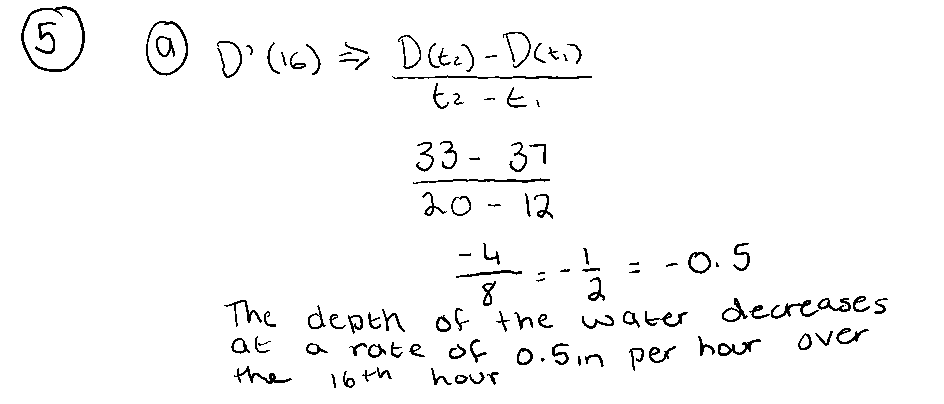 5 a D'(16) ⇒ D(t₂) - D(t₁)
t₂ - t₁
33 - 37
20 - 12
-4
8 = -1/2 = -0.5
The depth of the water decreases
at a rate of 0.5in per hour over
the 16th hour